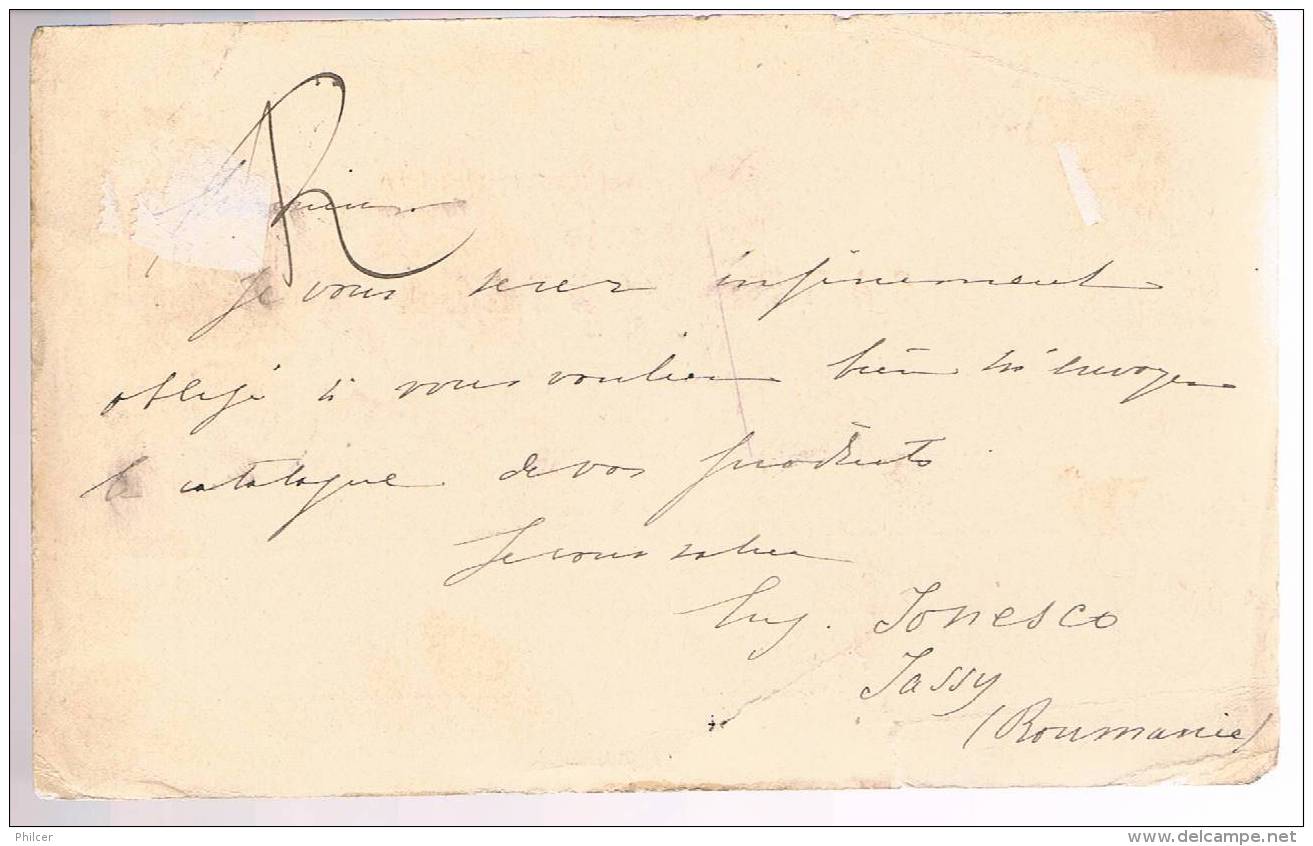 R
Monsieur
Je vous serez infinement
oblijé si vous voulien bien m'envoyer
le catalogue de vos produits
Je vous salue
Eug. Jonesco
Jassy
(Roumanie)
Philcer
www.delcampe.net